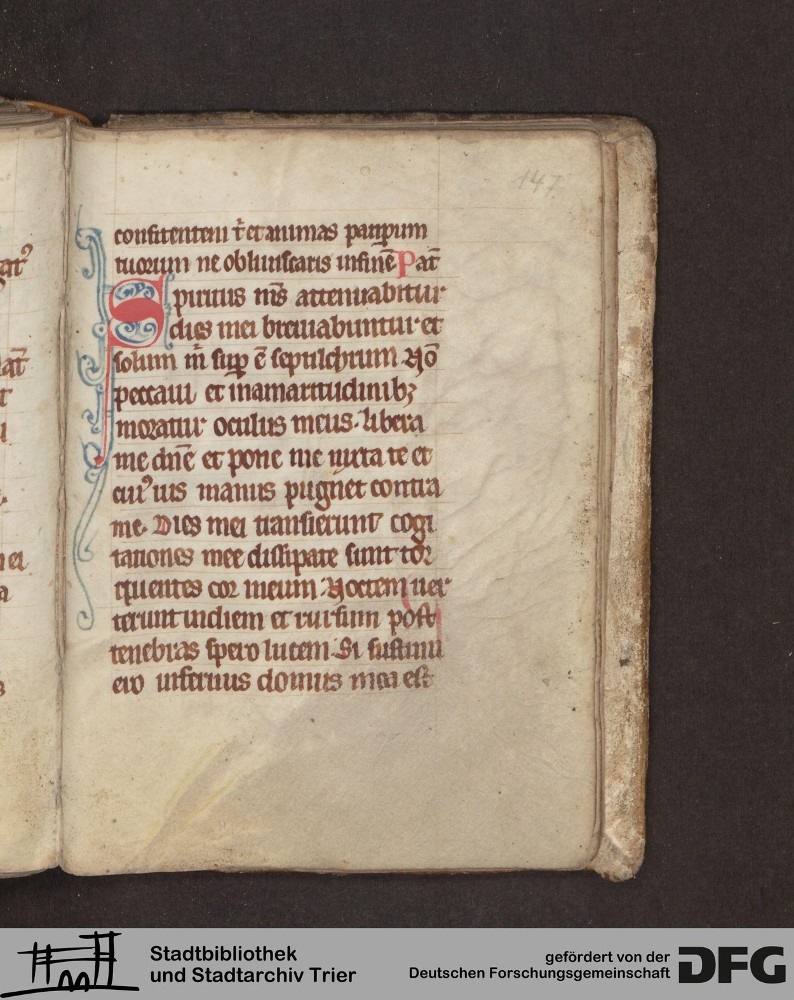 147
confitentem t̄ et animas paup̱um
tuorum ne obliuiscaris infinē Pat̄
Spiritus ms̄ attenuabitur
dies mei breuiabuntur et
solum m̄ sup̱ ē sepulchrum Nō
peccaui et inamaritudinibꝫ
moratur oculus meus. libera
me dn̄e et pone me iuxta te et
cui᾽uis manus pugnet contra
me. Dies mei transierunt cogi
tationes mee dissipate sunt tor
quentes cor meum. Noctem uer
terunt indiem et rursum post
tenebras spero lucem. Si sustinu
ero infernus domus mea est
Stadtbibliothek
und Stadtarchiv Trier
gefördert von der
Deutschen Forschungsgemeinschaft
DFG